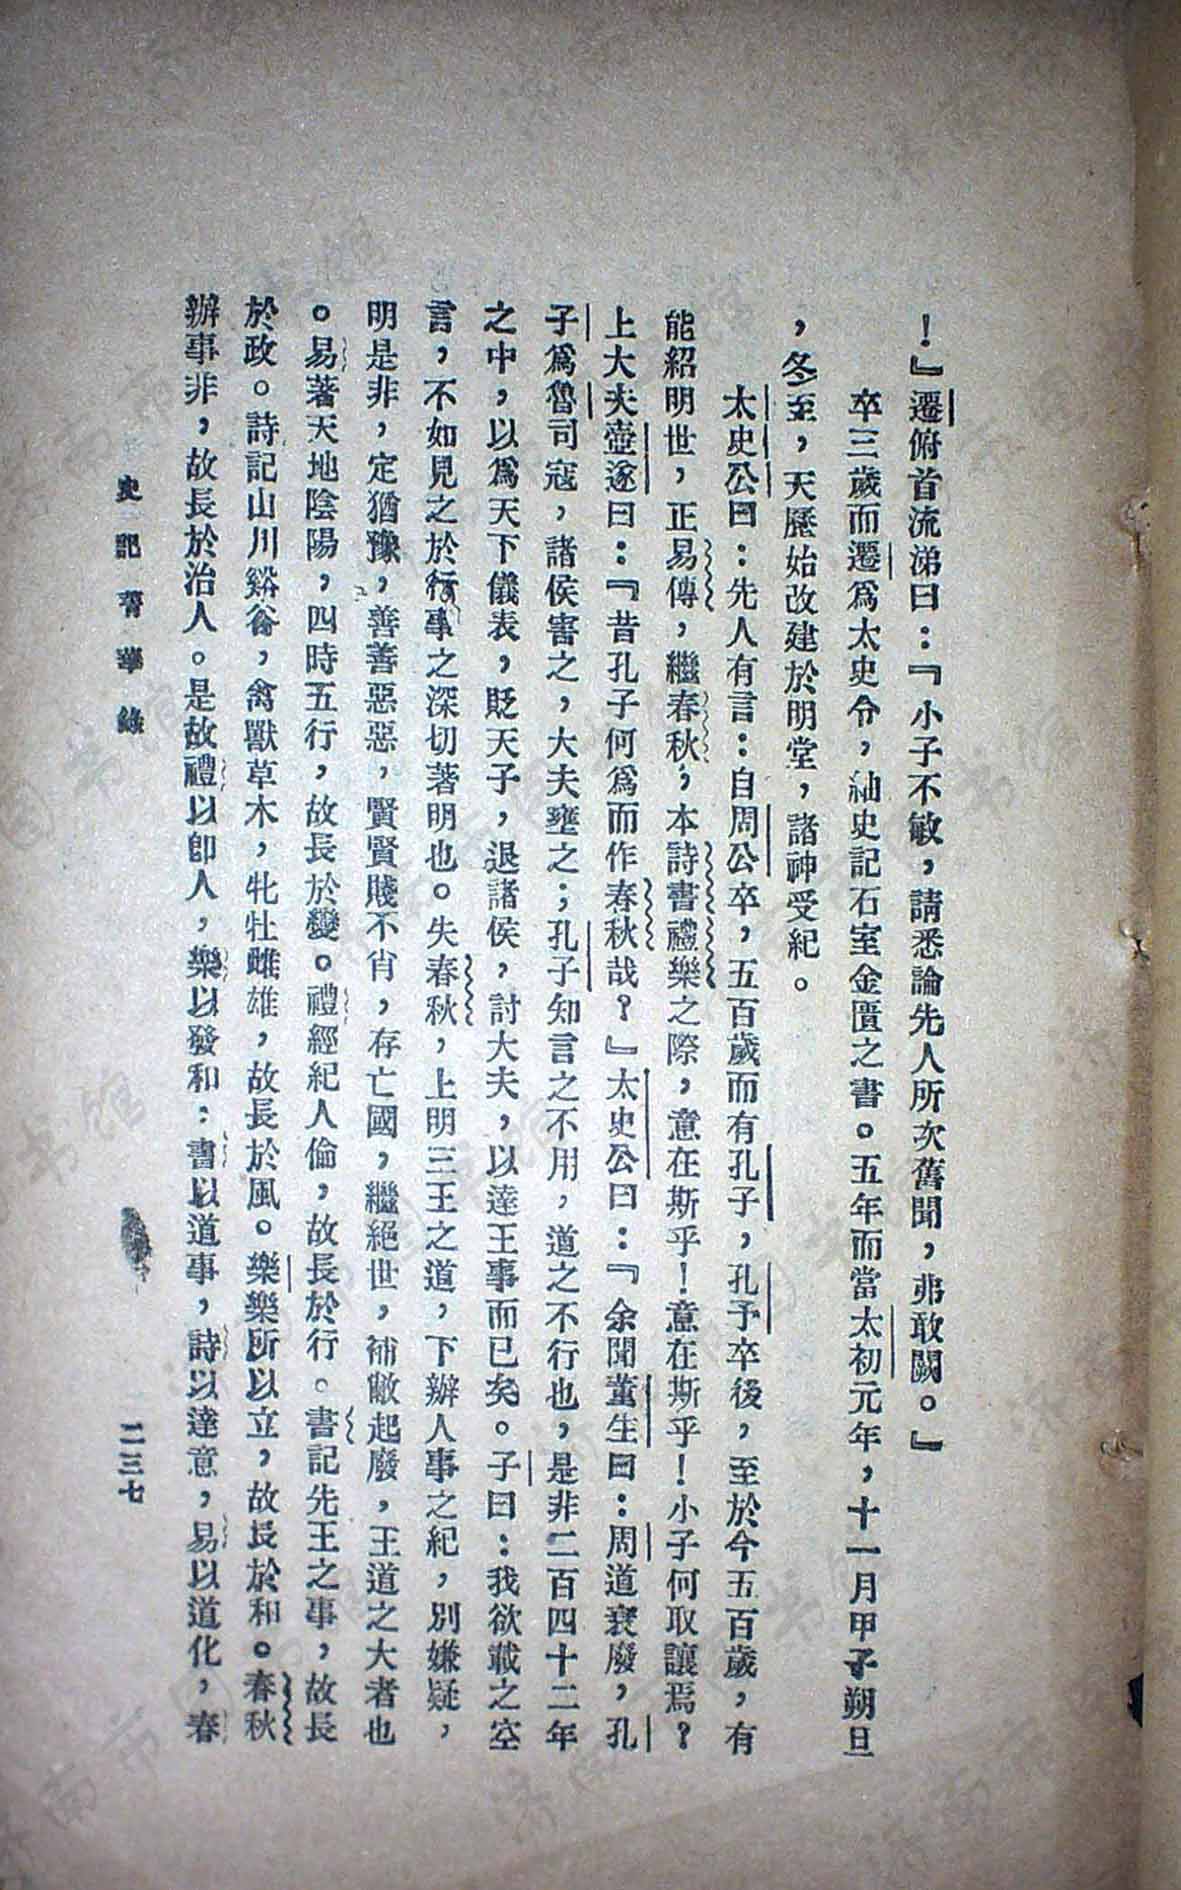 ！』遷俯首流涕曰：『小子不敏，請悉論先人所次舊聞，弗敢闕。』
卒三歲而遷爲太史令，紬史記石室金匱之書。五年而當太初元年，十一月甲子朔旦
，冬至，天歷始改建於明堂，諸神受紀。
太史公曰：先人有言：自周公卒，五百歲而有孔子，孔子卒後，至於今五百歲，有
能紹明世，正易傳，繼春秋，本詩書禮樂之際，意在斯乎！意在斯乎！小子何取讓焉？
上大夫壺遂曰：『昔孔子何爲而作春秋哉？』太史公曰：『余聞董生曰：周道衰廢，孔
子爲魯司寇，諸侯害之，大夫壅之；孔子知言之不用，道之不行也，是非二百四十二年
之中，以爲天下儀表，貶天子，退諸侯，討大夫，以達王事而已矣。子曰：我欲載之空
言，不如見之於行事之深切著明也。夫春秋，上明三王之道，下辦人事之紀，別嫌疑，
明是非，定猶豫，善善惡惡，賢賢賤不肖，存亡國，繼絕世，補敝起廢，王道之大者也
。易著天地陰陽，四時五行，故長於變。禮經紀人倫，故長於行。書記先王之事，故長
於政。詩記山川谿谷，禽獸草木，牝牡雌雄，故長於風。樂樂所以立，故長於和。春秋
辦事非，故長於治人。是故禮以卽人，樂以發和：書以道事，詩以達意，易以道化，春
史記菁華錄
二三七